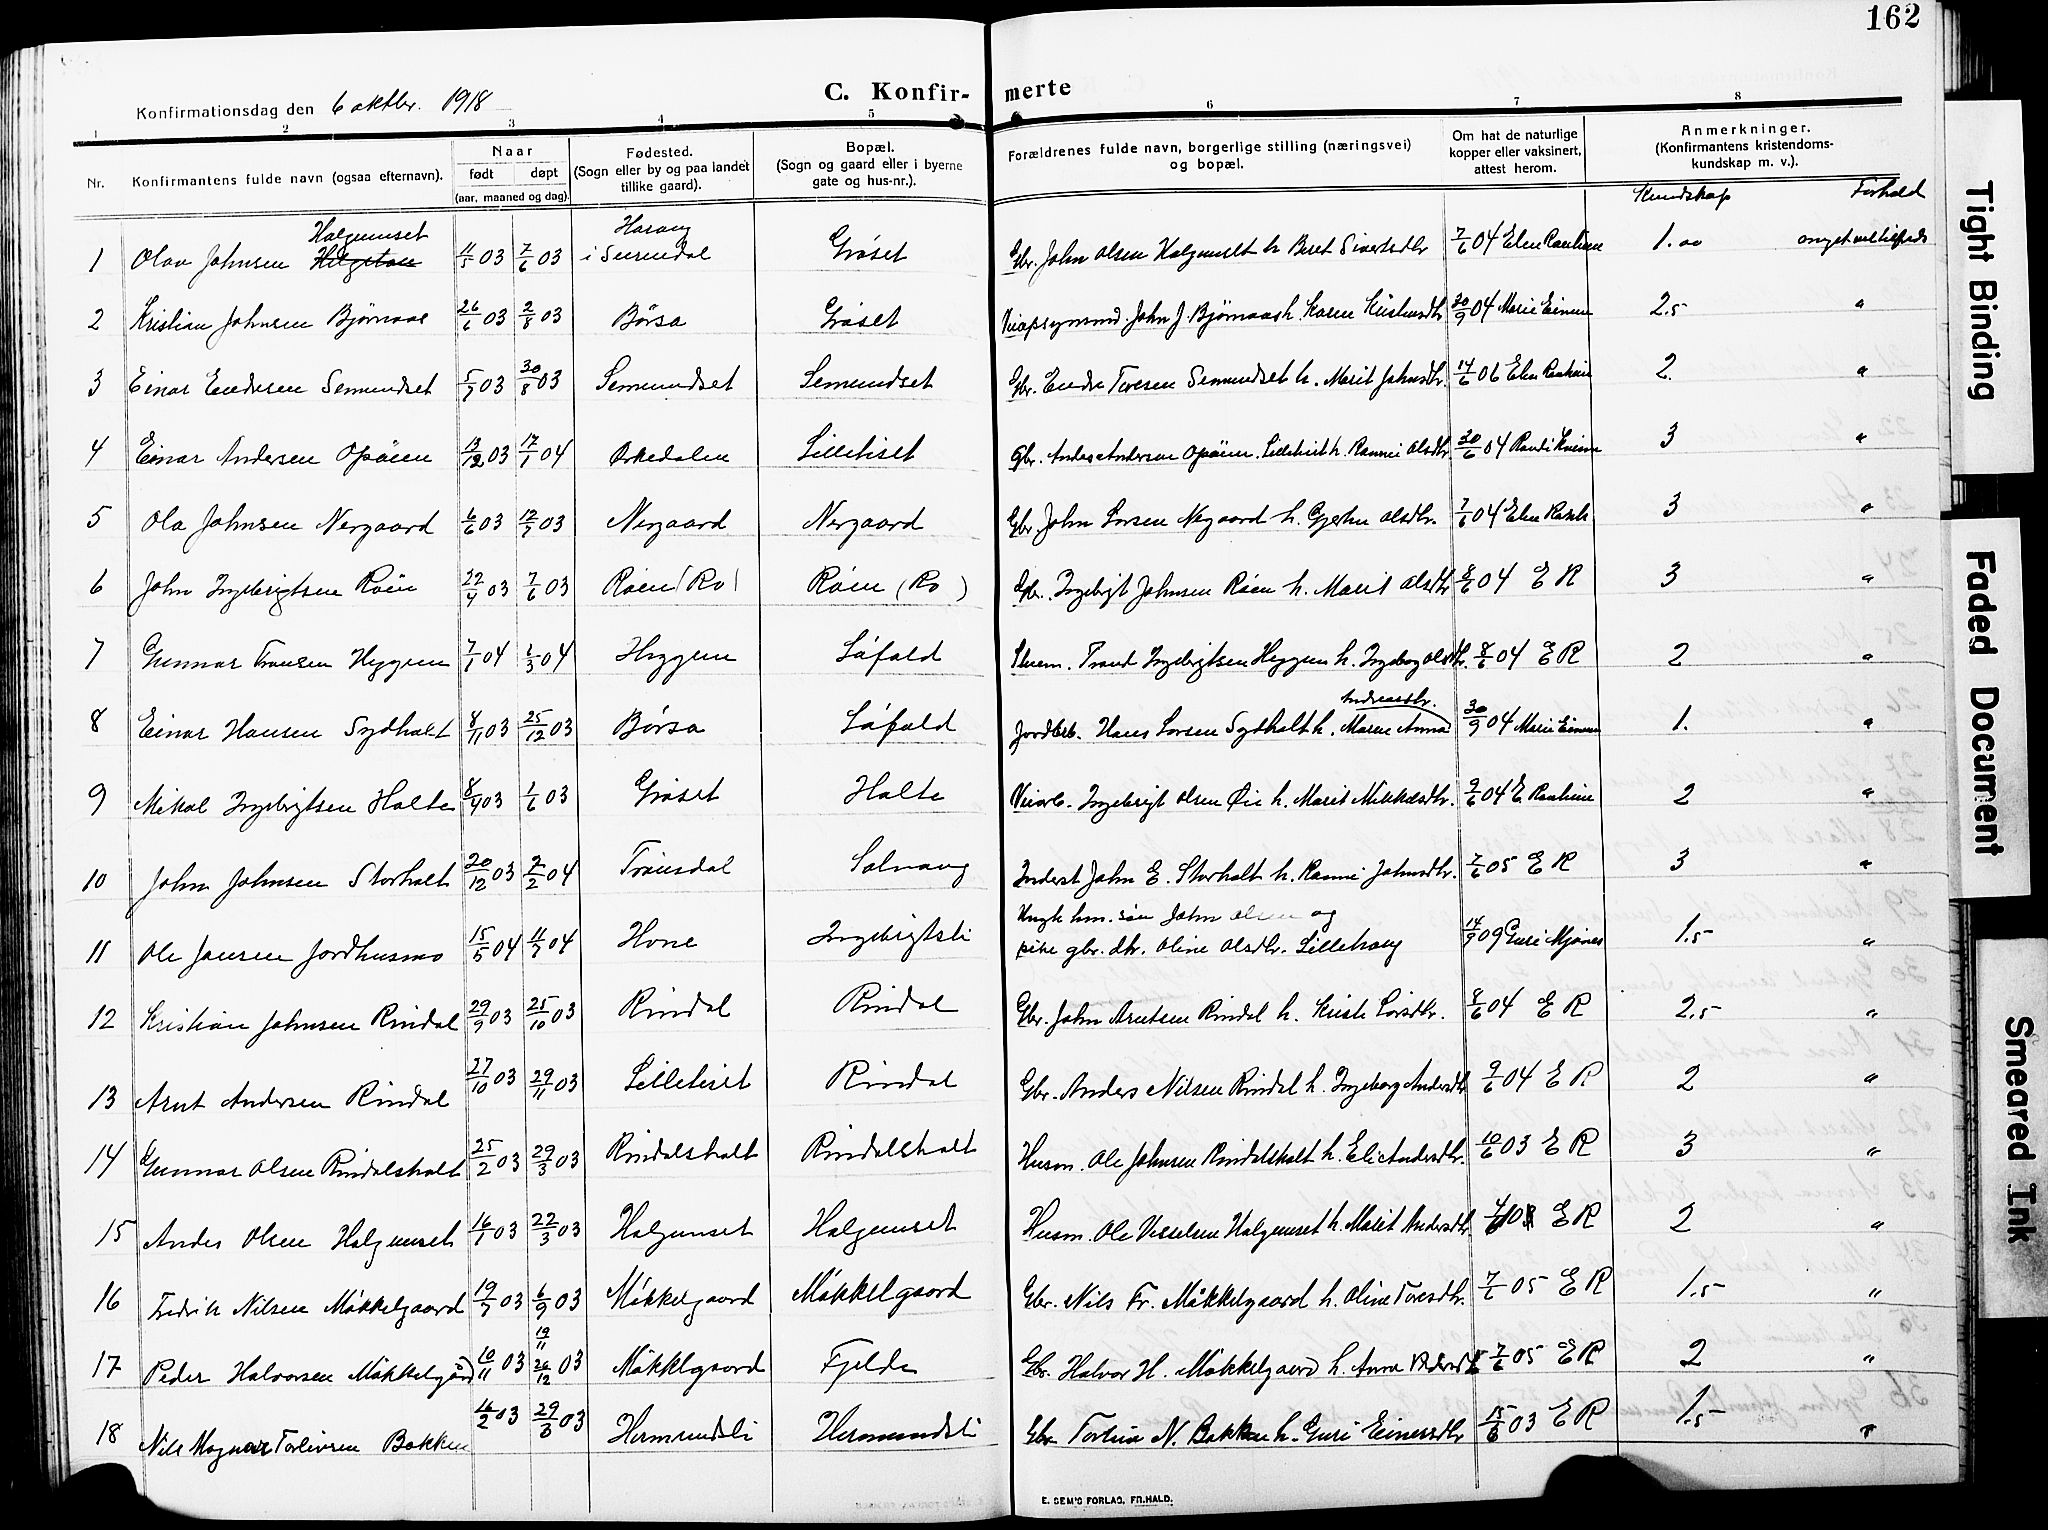 162
C. Konfir- merte
Konfirmationsdag den 6 oktbr. 1918
1 2 3 4 5 6 7 8
Nr. Konfirmantens fulde navn (ogsaa efternavn). Naar født døpt (aar, maaned og dag). Fødested. (Sogn eller by og paa landet tillike gaard). Bopæl. (Sogn og gaard eller i byerne gate og hus-nr.). Forældrenes fulde navn, borgerlige stilling (næringsvei) og bopæl. Om hat de naturlige kopper eller vaksinert, attest herom. Anmerkninger. (Konfirmantens kristendoms- kundskap m. v.).
Kundskap Forhold
Halgunset Harang
1 Olav Johnsen 11/5 03 7/6 03 i Surendal Grøset Gbr. John Olsen Halgunset h. Beret Sivertsdtr 7/6 04 Elen Raaheim 1.00 meget veltilfreds
2 Kristian Johnsen Bjørnaas 26/6 03 2/8 03 Børsa Grøset John J. Bjørnaas h. Karen 30/9 04 Marie 2.5 "
3 Einar Endresen Semundset 5/7 03 30/8 03 Semundset Semundset Gbr. Endre Toresen Semundset h. Marit Johnsdtr. 14/6 06 Elen Raaheim 2. "
4 Einar Andersen Opøien 13/12 03 17/1 04 Orkedalen Lilletiset Gbr. Anders Andersen Opøien. Lilletiset h. Rannei Olsdtr. 30/6 04 3 "
5 Ola Johnsen Nergaard 6/6 03 12/7 03 Nergaard Nergaard Gbr. John Larsen Nergaard h. Olsdtr. 7/6 04 Elen 3 "
6 John Ingebrigtsen Røen 22/4 03 7/6 03 Røen (Ro) Røen (Ro) Gbr. Ingebrigt Johnsen Røen h. Marit Olsdtr 8/6 04 E R 3 "
7 Gunnar Tronsen Heggem 7/1 04 1/3 04 Heggem Løfald Trond Ingebrigtsen Heggem h. Ingeborg Olsdtr. 8/6 04 E R 2 "
Andreasdtr.
8 Einar Hansen Sydhalt 8/11 03 25/12 03 Børsa Løfald Hans Larsen Sydhalt h. Maren Anna 30/9 04 Marie 1. "
9 Mikal Ingebrigtsen Halte 8/4 03 1/6 03 Grøset Halte Ingebrigt Olsen Øie h. Marit Mikkelsdtr. 9/6 04 E Raaheim 2 "
10 John Johnsen Storhalt 20/12 03 2/2 04 Trønsdal Solvang Inderst John E. Storhalt h. Rannei Johnsdtr. 7/6 05 E R 3 "
Ungk. hm. søn John Olsen og
11 Ole Jonsen Jordhusmo 15/5 04 11/7 04 Hone Ingebrigtsli pike gbr. dtr. Oline Olsdtr. Lillehaug 14/9 09 Guri Mjønes 1.5 "
12 Kristian Johnsen Rindal 29/9 03 25/10 03 Rindal Rindal Gbr. John Arntsen Rindal h. Larsdtr. 8/6 04 E R 2.5 "
13 Arnt Andersen Rindal 27/10 03 29/11 03 Lilletiset Rindal Gbr. Anders Nilsen Rindal h. Ingeborg Andersdtr 9/6 04 E R 2 "
14 Gunnar Olsen Rindalshalt 25/2 03 29/3 03 Rindalshalt Rindalshalt Husm. Ole Johnsen Rindalshalt h. Eli Andersdtr. 10/6 03 E R 3 "
15 Anders Olsen Halgunset 16/1 03 22/3 03 Halgunset Halgunset Husm. Ole Halgunset h. Marit Andersdtr E R 2 "
16 Fredrik Nilsen Møkkelgaard 19/7 03 6/9 03 Møkkelgaard Møkkelgaard Gbr. Nils Fr. Møkkelgaard h. Oline Toresdtr. 7/6 05 E R 1.5 "
19/11
17 Peder Halvorsen Møkkelgård 10/11 03 26/12 03 Møkkelgaard Fjelde Gbr. Halvor H. Møkkelgaard h. Anna 7/6 05 E R 2 "
18 Nils Magnar Torlivsen Bakken 16/2 03 29/3 03 Hermundsli Hermundsli Gbr. N. Bakken h. Guri Einersdtr 15/6 03 E R 1.5 "
E. SEM'S FORLAG, FR.HALD.
Tight Binding
Faded Document
Smeared Ink